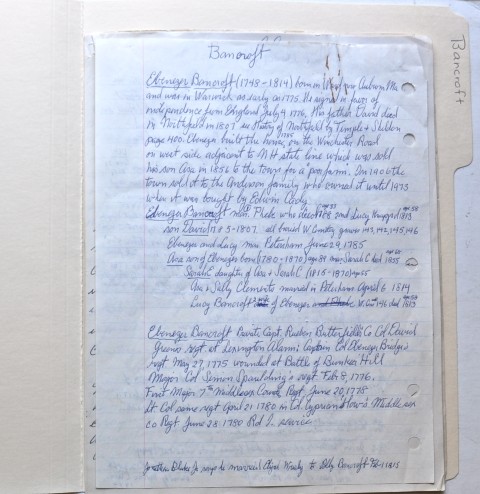 Bancroft
Bancroft
Ebenezer Bancroft (1748-1814) born in Ward now Auburn Ma
and was in Warwick as early as 1775. He signed in favor of
independence from England July 4, 1776. His father David died
in Northfield in 1807 see History of Northfield by Temple + Sheldon
page 400. Ebenezer built the house on the Winchester Road
on west side adjacent to NH state line which was sold
his son Asa in 1856 to the town for a poor farm. In 1906 the
town sold it to the Anderson family who owned it until 1973
when it was bought by Edwin Cody.
Ebenezer Bancroft mar. Phebe who died 2nd Lucy 1813
son David 1783-1807. all buried W. Cemetery graves 143, 142, 145, 146
Ebenezer and Lucy mar. Petersham June 29, 1785
Asa son of Ebenezer born (1780-1870) age 89 mar. Sarah C. died 1855
Sarah C daughter of Asa + Sarah C. (1815-1870) age 55
Asa + Sally Clements married in Petersham April 6 1814
Lucy Bancroft 2nd of Ebenezer W. Cem 146 died 1813
Ebenezer Bancroft Private, Capt. Reuben Butterfield's Co Col David
Greens regt. at Lexington Alarm; Captain Col Ebenezer Bridge's
regt May 27, 1775 wounded at Battle of Bunker Hill
Major Col Simeon Spaulding's regt Feb 8, 1776.
First Major 7th Middlesex County Regt, June 20, 1778
Lt Col same regt April 21 1780 in Col. Cyprian Howe's Middlesex
co Regt June 28 1780 Rd I. service
Jonathan Blake Jr says he married to Polly Bancroft 1815